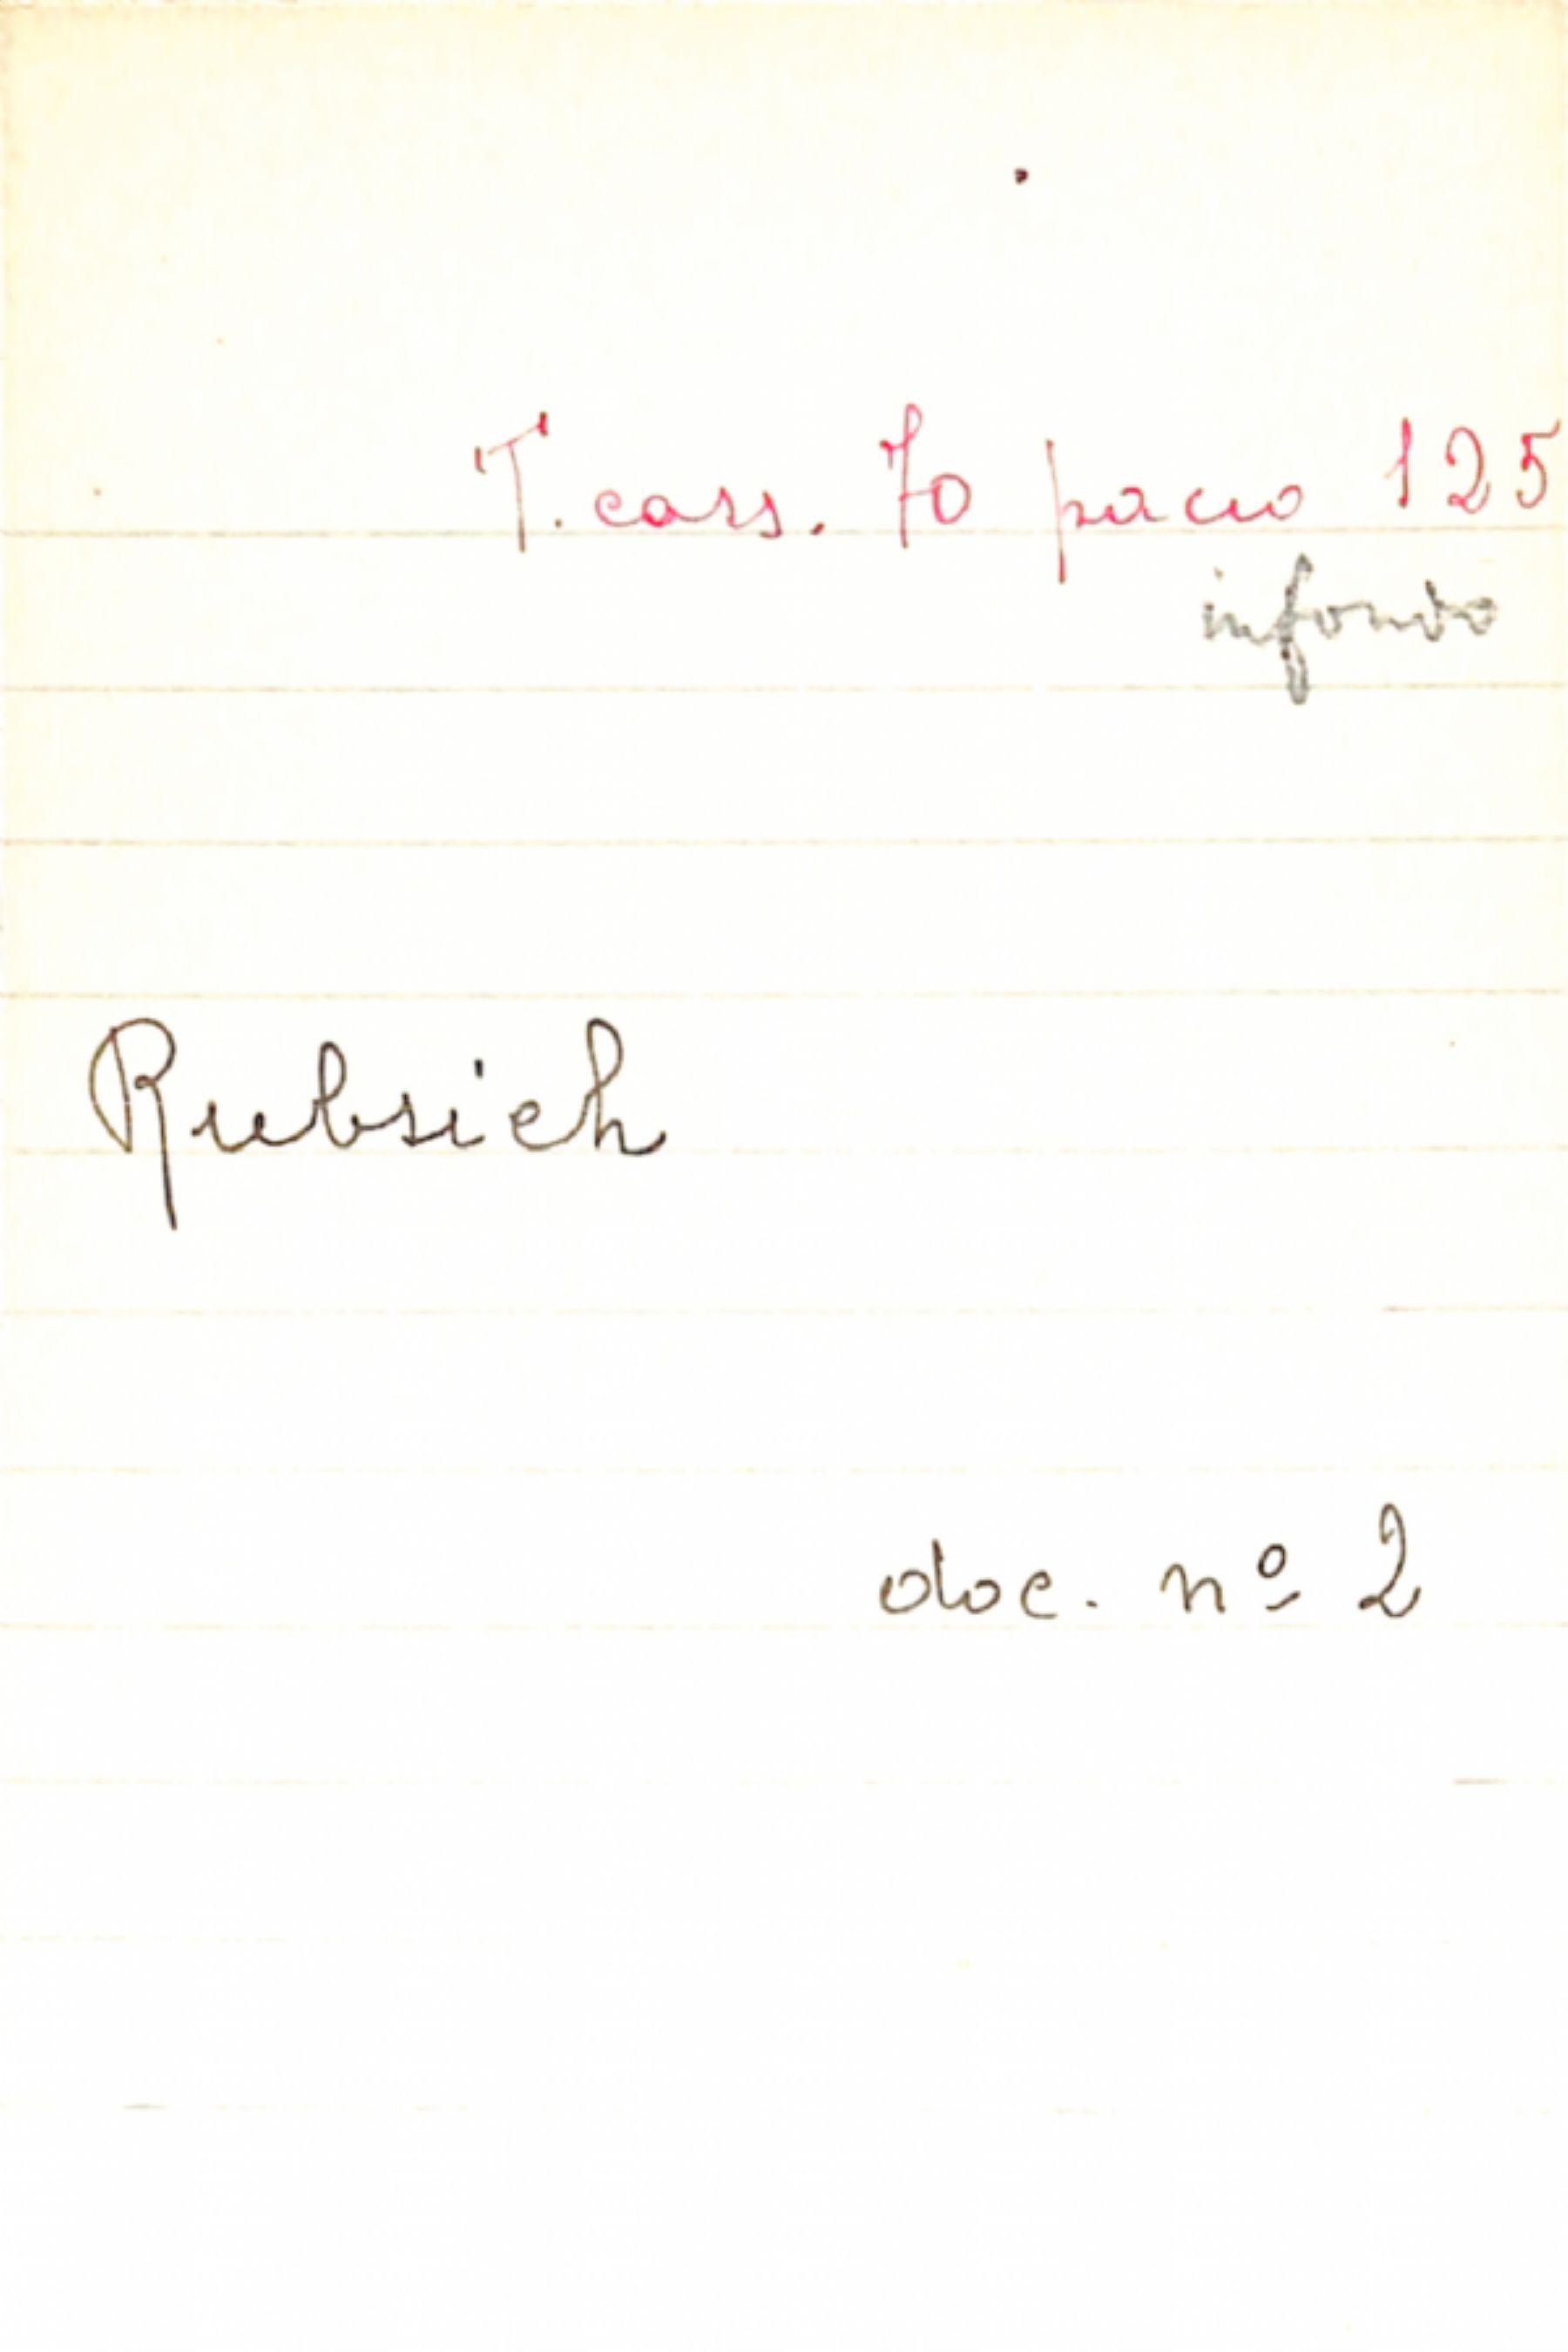 T. cass. 70 pacco 125
in fondo
Rubsich
doc. nº 2